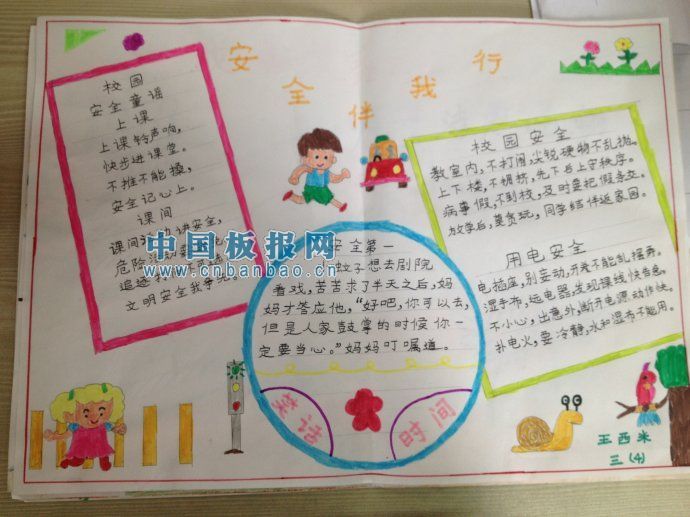 安全伴我行
校园
安全童谣
上课
上课铃声响,
快步进课堂。
不推不能操,
安全记心上。
课间
课间活动讲安全,
危险
追逐
文明安全我争先。
中国板报网
www.cnbanbao.cn
校园安全
教室内,不打闹,尖锐硬物不乱抛。
上下楼,不拥挤,先下后上守秩序。
病事假,不到校,及时要把假条交。
放学后,莫贪玩,同学结伴返家园。
用电安全
电插座,别妄动,开关不能乱摆弄。
湿手布,远电器,发现裸线快告急。
不小心,出意外,断开电源动作快。
扑电火,要冷静,水和湿布不能用。
安全第一
小蚊子想去剧院
看戏,苦苦求了半天之后,妈
妈才答应他,“好吧,你可以去,
但是人家鼓掌的时候你一
定要当心。”妈妈叮嘱道。
笑话
时间
王西米
三(4)